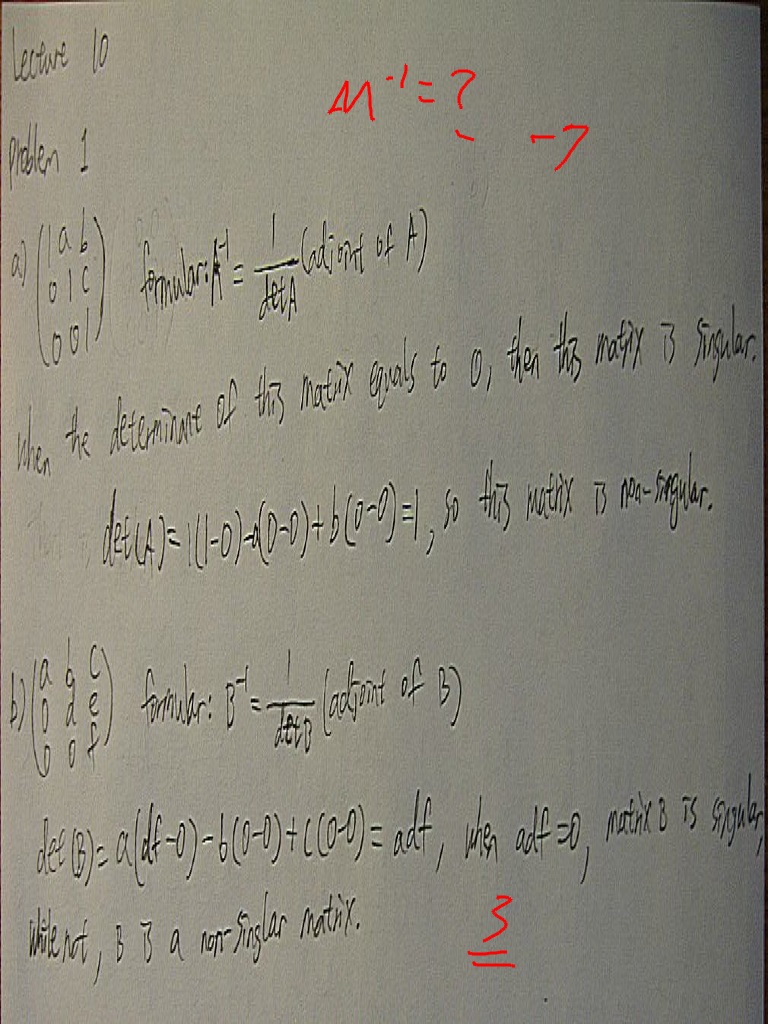 Lecture 10
M⁻¹ = ?
-7
Problem 1
a) (1 a b
0 1 c
0 0 1) formular: A⁻¹ = 1/detA (adjoint of A)
When the determinant of this matrix equals to 0, then this matrix is singular.
det(A) = 1(1-0)-a(0-0)+b(0-0)=1, so this matrix is non-singular.
b) (a b c
0 d e
0 0 f) formular: B⁻¹ = 1/detB (adjoint of B)
det(B) = a(df-0)-b(0-0)+c(0-0) = adf, when adf=0, matrix B is singular,
while not, B is a non-singlar matrix.
3